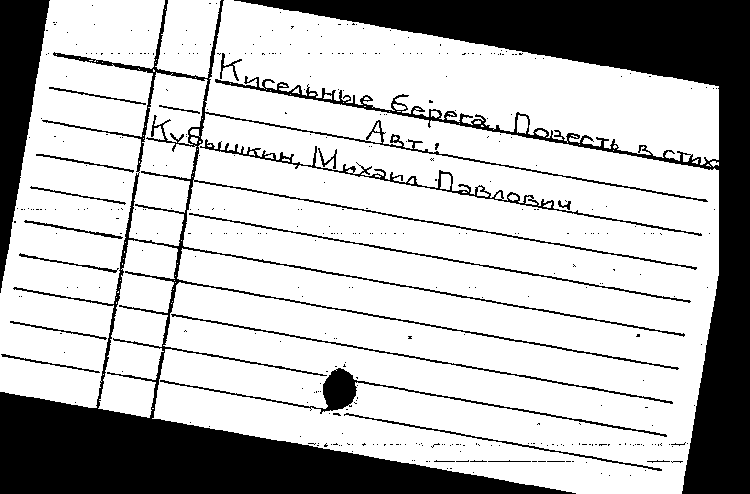 Кисельные берега. Повесть в стиха
Авт.:
Кубышкин, Михаил Павлович.